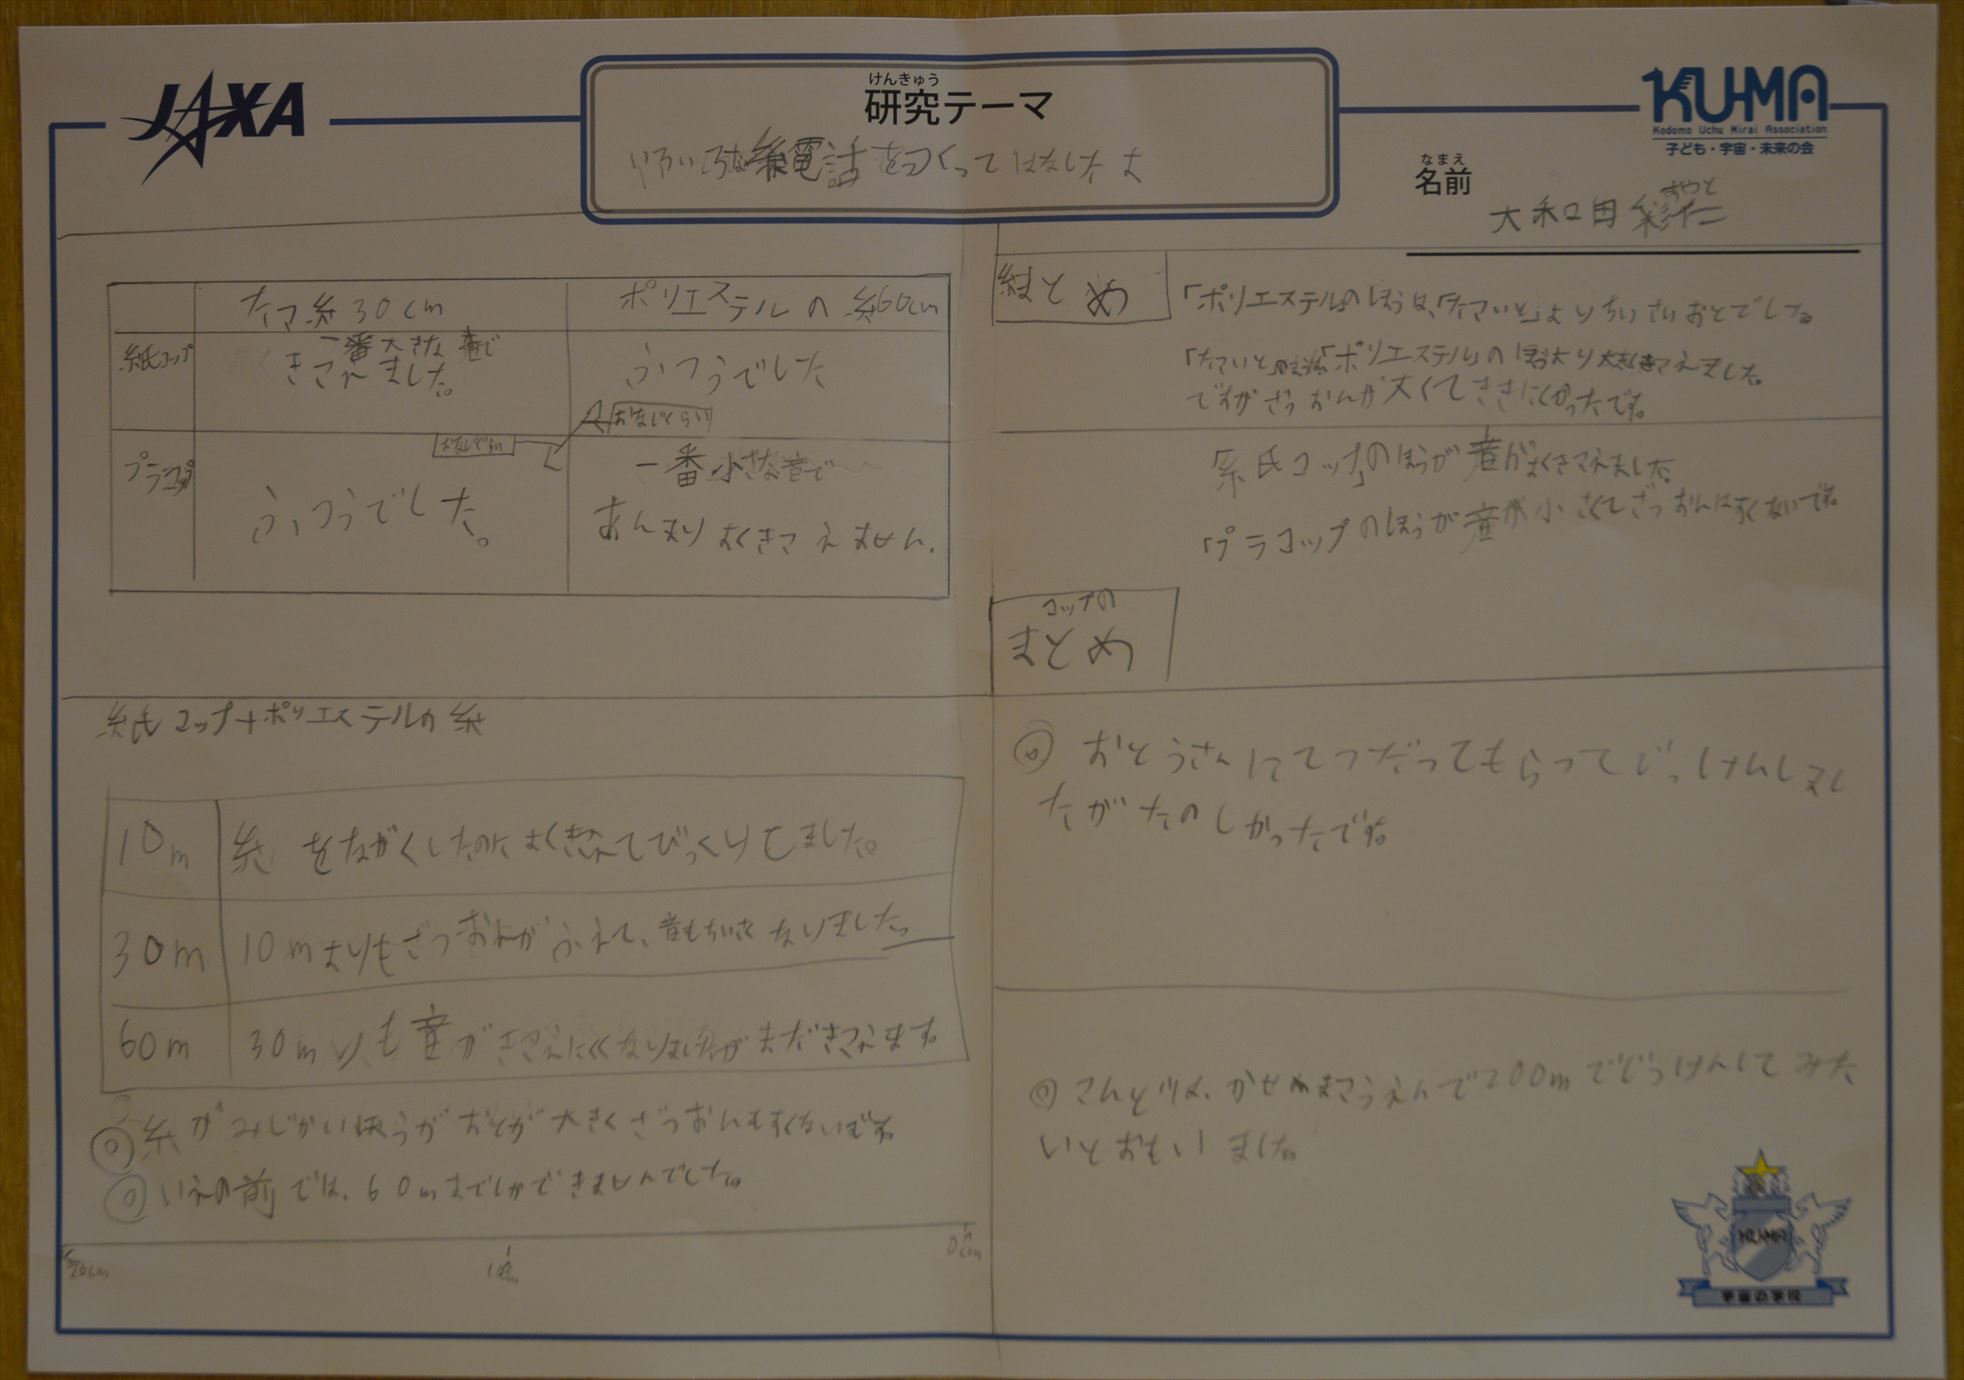 JAXA
けんきゅう
研究テーマ
いろいろな糸電話をつくってはなしたよ
KU-MA
Kodomo Uchu Mirai Association
子ども・宇宙・未来の会
なまえ
名前
大和田彩仁
あやと
タコ糸30cm
ポリエステルの糸60cm
紙コップ
一番大きな音で
よくきこえました。
ふつうでした
おなじくらい
おなじくらい
プラコップ
ふつうでした。
一番小さな音で
あんまりよくきこえません。
紙コップ+ポリエステルの糸
10m
糸をながくしたのによくきこえてびっくりしました。
30m
10mよりもざつおんがふえて、音もちいさくなりました。
60m
30mよりも音がきこえにくくなりましたがまだきこえます。
◎糸がみじかいほうがおとが大きくざつおんもすくないです
◎いえの前では、60mまでしかできませんでした。
20cm
0cm
まとめ
「ポリエステル」のほうは、「たこいと」よりちいさいおとでした。
「たこいと」のほうは「ポリエステル」のほうより大きくきこえました。
ですがざつおんが大くてききにくかったです。
「紙コップ」のほうが音がよくきこえました。
「プラコップのほうが音が小さくてざつおんはすくないです。
コップの
まとめ
◎おとうさんにてつだってもらってじっけんしまし
たがたのしかったです。
◎こんどは、かせやまこうえんで200mでじっけんしてみた
いとおもいました。
KU-MA
宇宙の学校